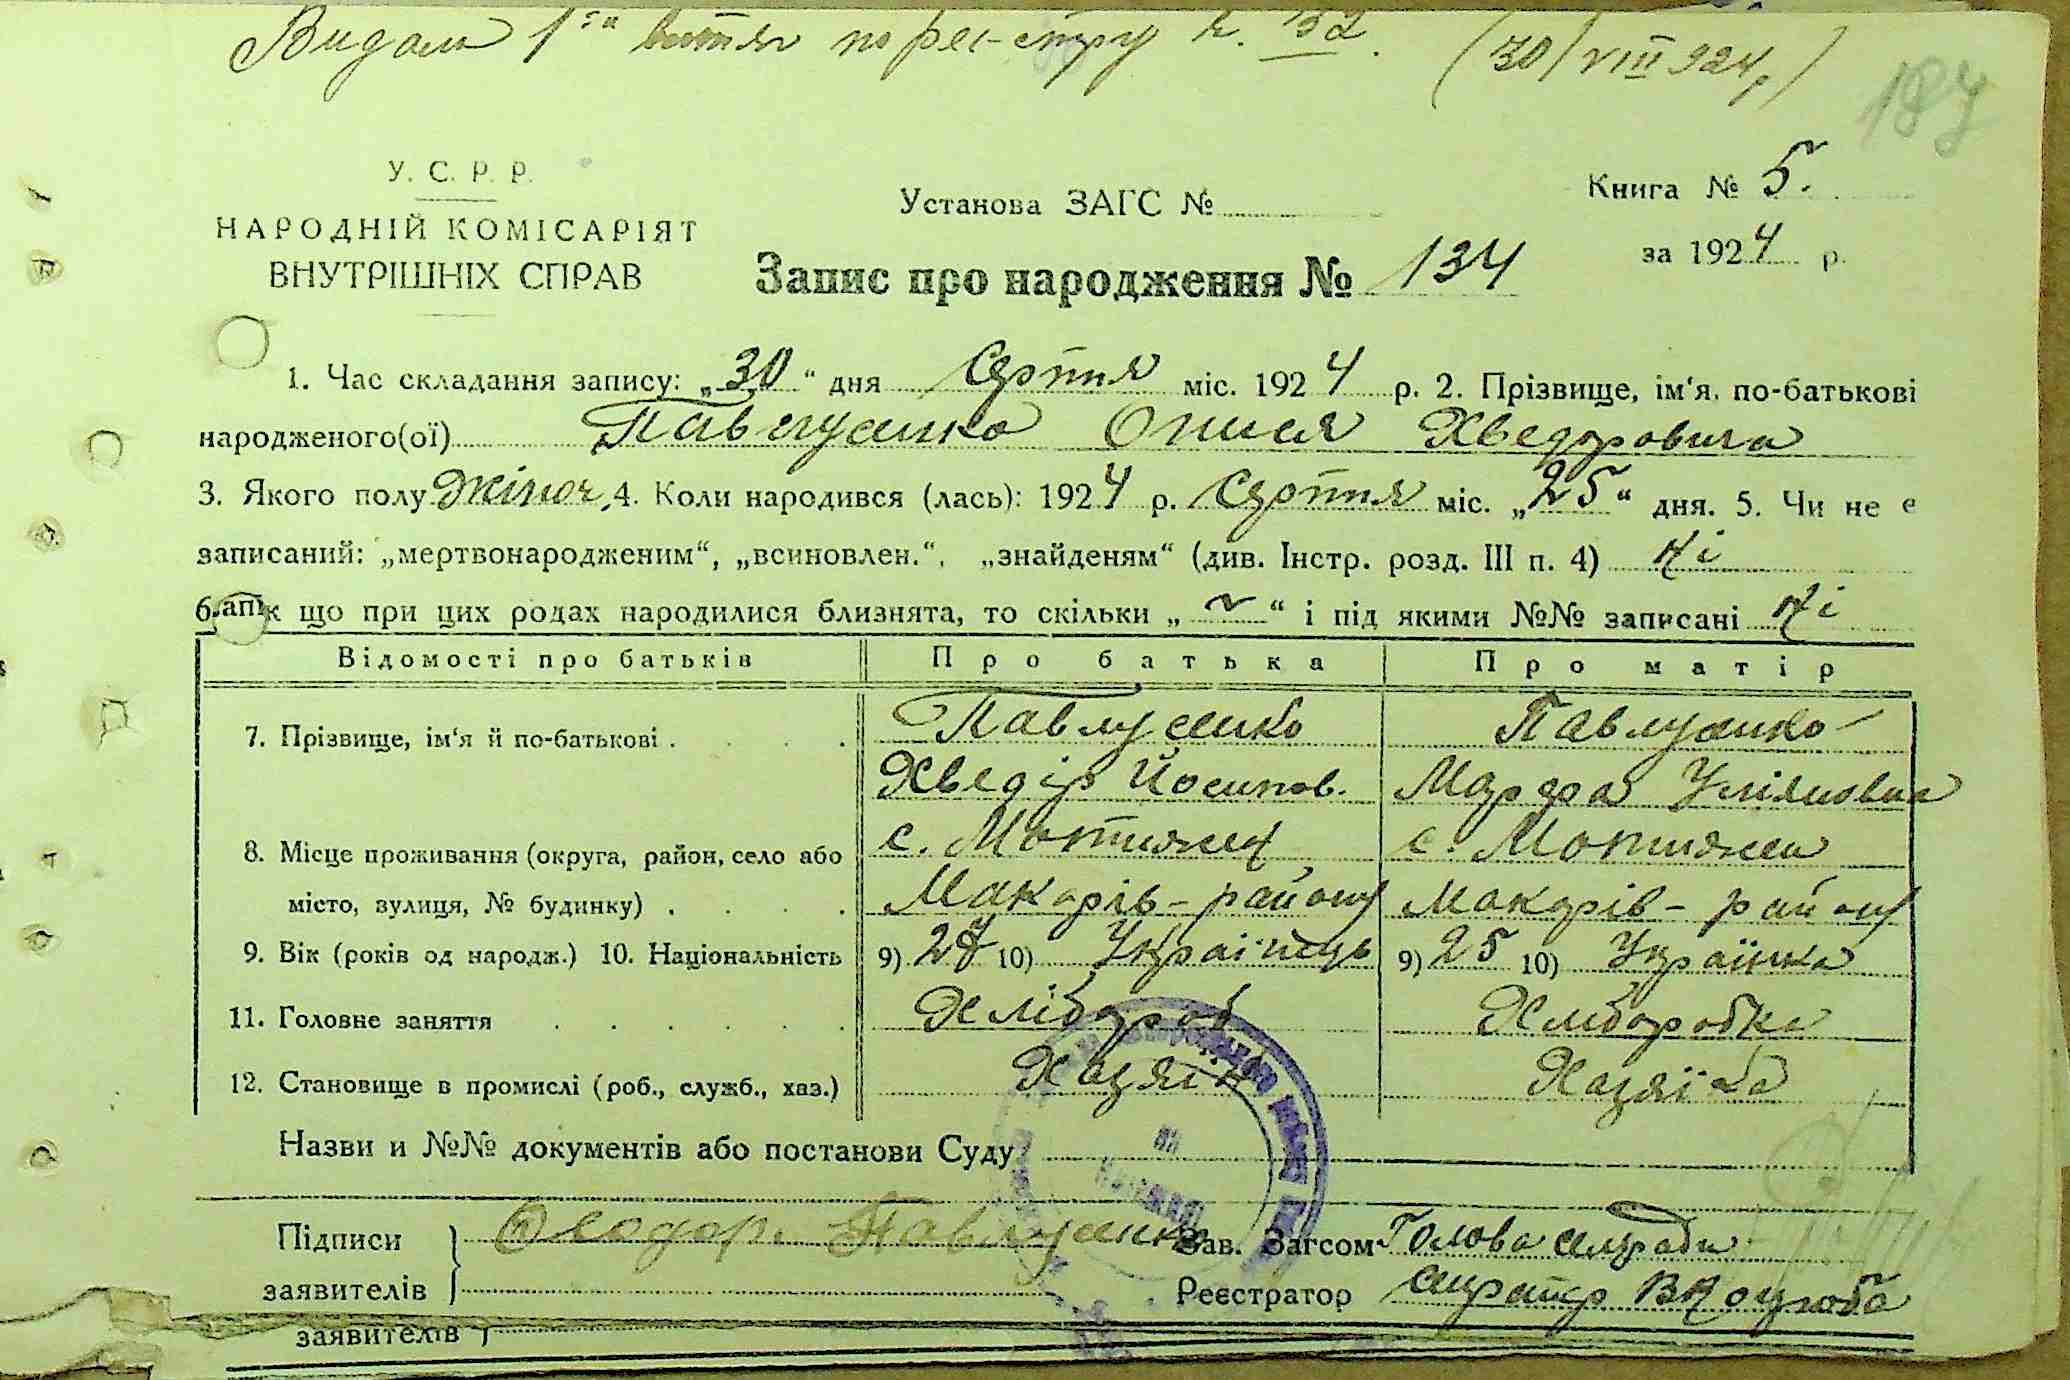 Видали 1ий витяг по реєстру н. 132. (30/VIII 924р)
187
У. С. Р. Р.
НАРОДНІЙ КОМІСАРІЯТ
ВНУТРІШНІХ СПРАВ
Установа ЗАГС №
Книга № 5.
за 1924 р.
Запис про народження № 134
1. Час складання запису: „30“ дня Серпня міс. 1924 р. 2. Прізвище, ім‘я, по-батькові
народженого(ої) Павлусенко Хведоровича
3. Якого полу Жіноч. 4. Коли народився (лась): 1924 р. Серпня міс. „25“ дня. 5. Чи не є
записаний: „мертвонародженим“, „всиновлен.“, „знайденям“ (див. Інстр. розд. III п. 4) Ні
к що при цих родах народилися близнята, то скільки „~“ і під якими №№ записані Ні
Відомості про батьків Про батька Про матір
7. Прізвище, ім‘я й по-батькові . . . . Павлусенко Павлусенко
Хведір Йосипов. Марфа Уляновна
8. Місце проживання (округа, район, село або с. Мотижин с. Мотижин
місто, вулиця, № будинку) . . . . Макарів-району Макарів-району
9. Вік (років од народж.) 10. Національність 9) 10) Українець 9) 25 10) Українка
11. Головне заняття . . . . . . Хлібороб Хліборобка
12. Становище в промислі (роб., служб., хаз.) Хазяїн Хазяїка
Назви и №№ документів або постанови Суду
Підписи Павлусенко Зав. Загсом Голова сельради
заявителів Реєстратор секретар
заявителів